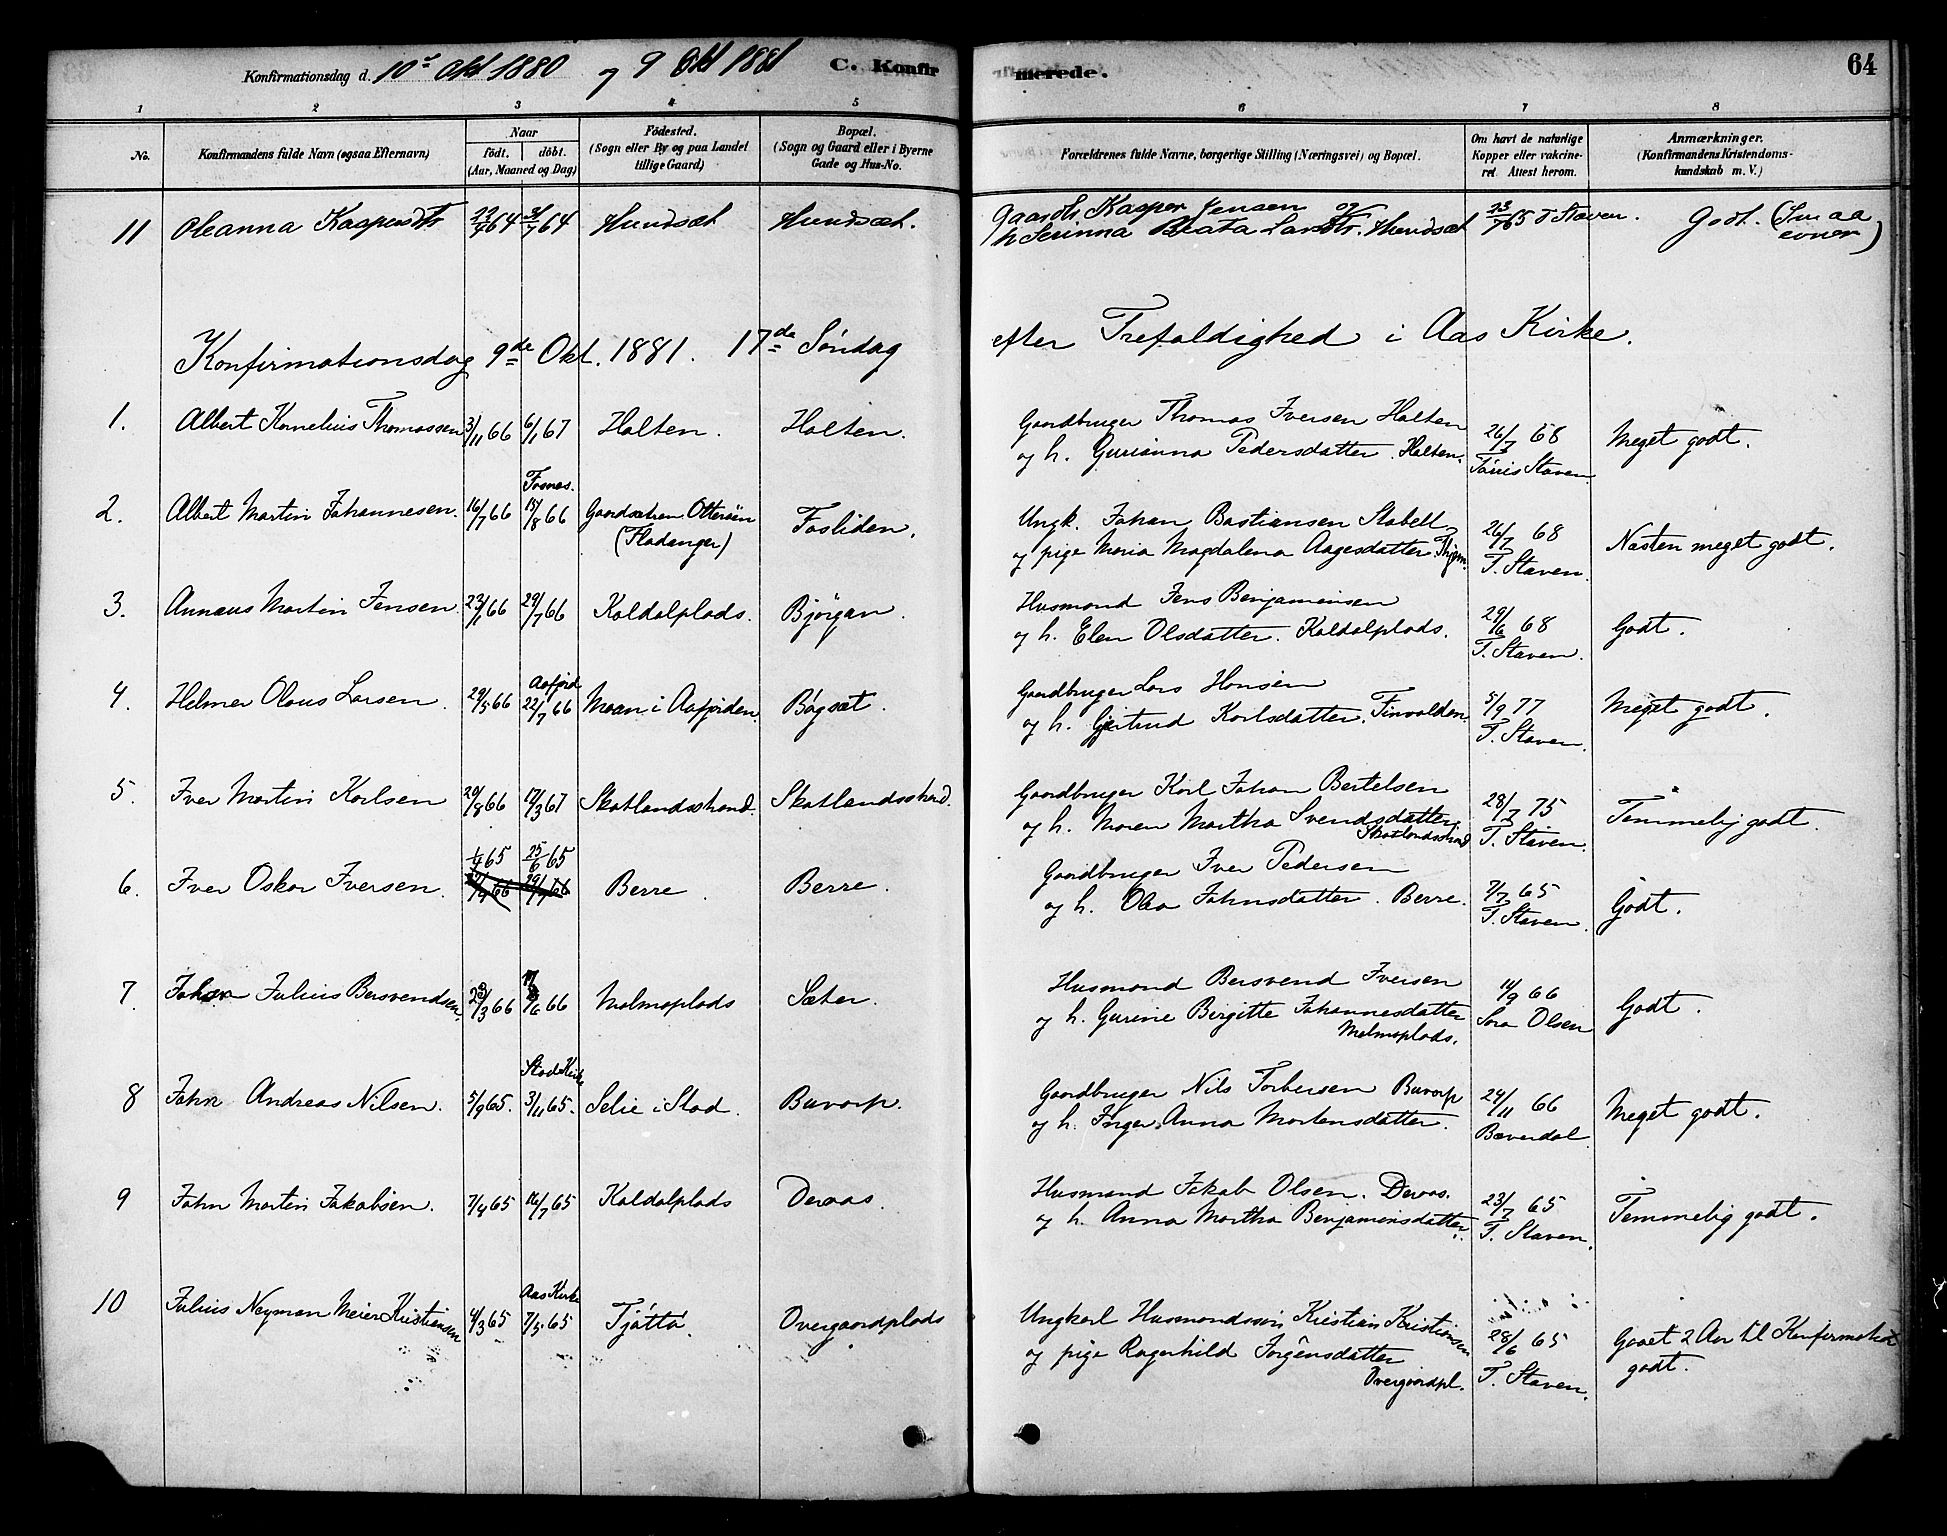 Konfirmationsdag d. 10de Okt 1880 og 9 Okt 1881 C. Konfirmerede. 64
1 2 3 4 5 6 7 8
No. Konfirmandens fulde Navn (ogsaa Efternavn) Naar födt. döbt. (Aar, Maaned og Dag) Födested. (Sogn eller By og paa Landet tillige Gaard) Bopæl. (Sogn og Gaard eller i Byerne Gade og Hus-No. Forældrenes fulde Navne, borgerlige Stilling (Næringsvei) og Bopæl. Om havt de naturlige Kopper eller vakcineret. Attest herom. Anmærkninger. (Konfirmandens Kristendomskundskab m. V.)
11 Oleanna Kaspersdtr 22/7 64 31/7 64 Hundsæt Hundsæt. Gaardbr Kasper Jensen og
h Serinna Beata Larsdtr. Hundsæt 23/7 65 T Staven. Godt. (Smaa evner)
Konfirmationsdag 9de Okt. 1881. 17de Søndag efter Trefoldighed i Aas Kirke.
1. Albert Kornelius Thomassen 3/11 66 6/1 67 Holten. Holten. Gaardbruger Thomas Iversen Holten
og h. Gurianna Pedersdatter. Holten. 26/7 68 Tønis Staven Meget godt.
2. Albert Martin Johannesen. 16/7 66 Fosnes. 15/8 66 Ottersöen (Fladanger) Fosliden. Ungk. Johan Bastiansen Stabell
og pige Maria Magdalena Aagesdatter 26/7 68 T. Staven. Næsten meget godt.
3. Annæus Martin Jensen. 23/1 66 29/7 66 Kaldalplads. Bjørgan. Husmand Jens Benjaminsen
og h. Elen Olsdatter. Kaldalplads. 29/6 68 T. Staven. Godt.
4. Helmer Olaus Larsen. 29/5 66 Aafjord 22/7 66 Moan i Aafjorden Bøgset. Gaardbruger Lars Hansen
og h. Gjertrud Karlsdatter. Finvolden. 5/9 77 T. Staven. Meget godt.
5. Iver Martin Karlsen 29/8 66 17/3 67 Skatlandsstrand. Skatlandsstrand. Gaardbruger Karl Johan Bertelsen
og h. Maren Martha Svendsdatter Skatlandsstrand 28/7 75 T. Staven. Temmelig godt.
6. Iver Oskar Iversen. 1/4 65 25/6 65 Berre. Berre. Gaardbruger Iver Pedersen
og h. Olea Johnsdatter. Berre. 7/7 65 T. Staven. Godt.
7. Johan Julius Bersvendsen. 28/3 66 17/6 66 Malmoplads Sæter. Husmand Bersvend Iversen
og h. Gurine Birgitte Johannesdatter Malmoplads. 11/9 66 Sara Olsen Godt.
8 John Andreas Nilsen. 5/9 65. Stod Kirke 3/11 65. Selie i Stod. Buvarp. Gaardbruger Nils Torbersen Buvarp
og h. Inger Anna Mortensdatter. 24/11 66 Bæverdal. Meget godt.
9 John Martin Jakobsen. 7/4 65 16/7 65 Kaldalplads Devaas. Husmand Jakob Olsen. Devaas.
og h. Anna Martha Benjaminsdatter. 23/7 65 T. Staven. Temmelig godt.
10 Julius Neyman Meier Kristiansen 4/3 65 Aas Kirke 7/5 65 Tjøtta. Overgaardplads. Ungkarl Husmandssøn Kristian Kristiansen
og pige Ragnhild Jørgensdatter Overgaardpl. 28/6 65 T. Staven. Gaaet 2 Aar til Konfirmation godt.